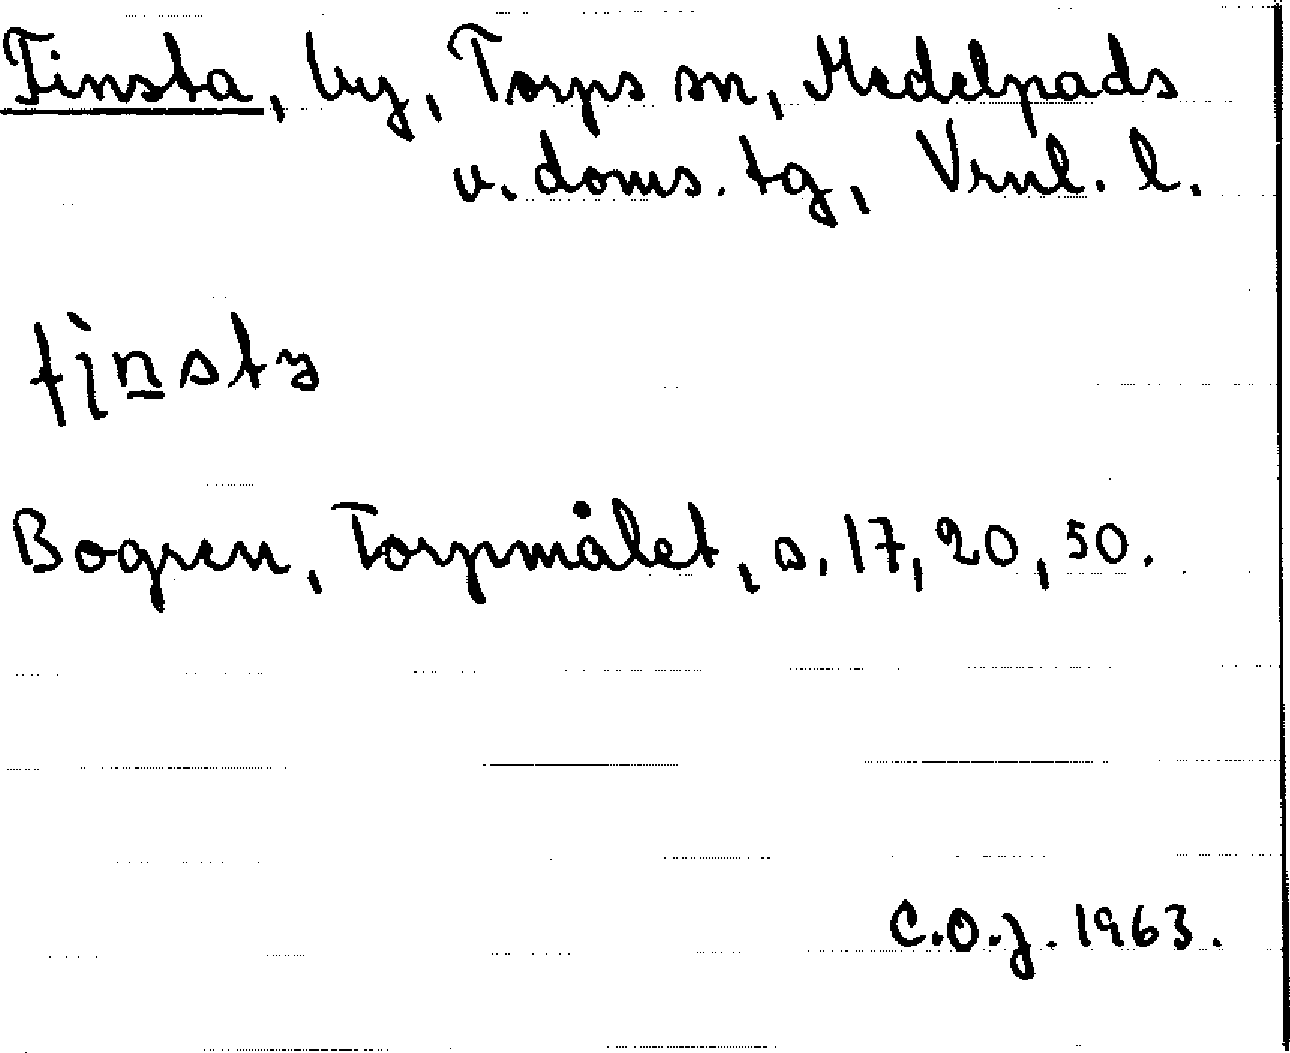 Finsta, by, Torps sn, Medelpads
v. doms. tg, Vrnl. l.
Bogren, Torpmålet, s. 17, 20, 50.
C.O.J. 1963.